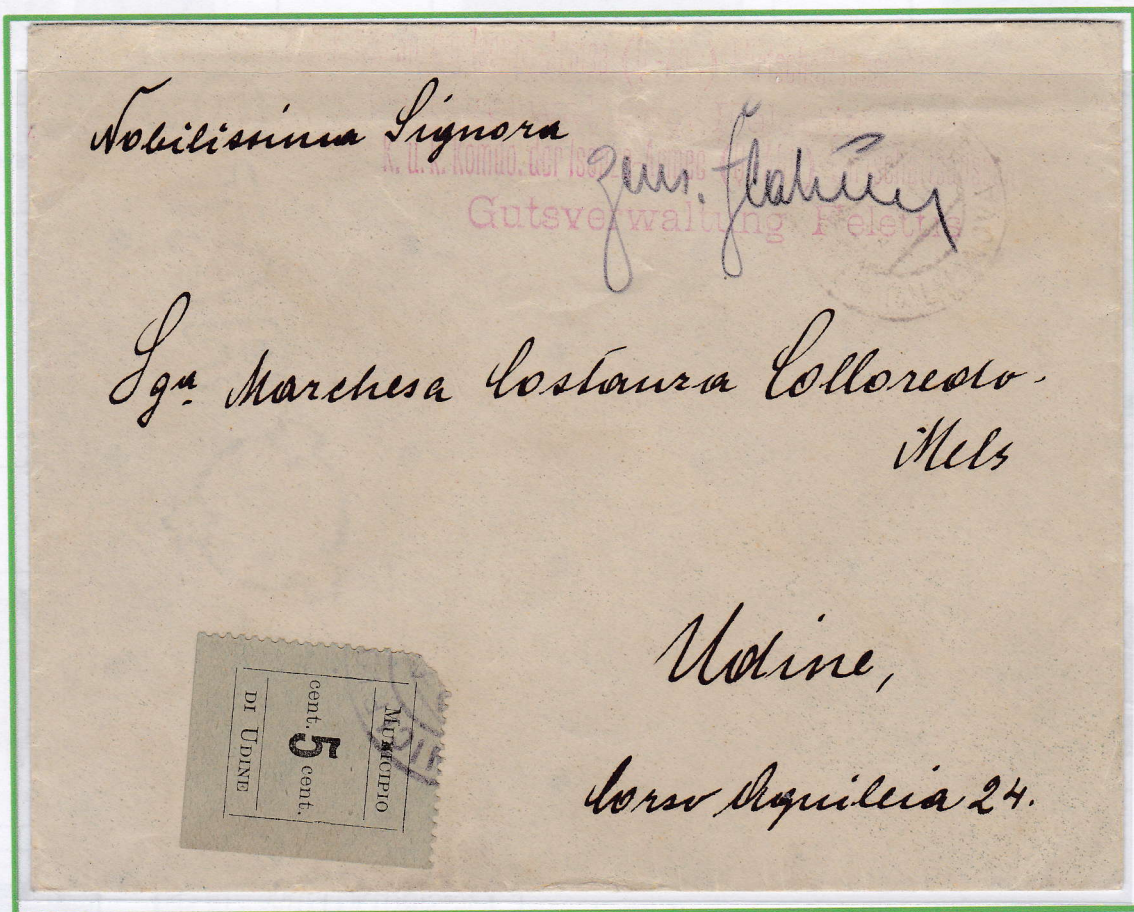 Nobilissima Signora
K. u. k. Komdo. der Isonzo
Gutsverwaltung
Sga. Marchesa Costanza Colloredo-
Mels
Udine,
Corso Aquileia 24.
MUNICIPIO
cent. 5 cent.
DI UDINE